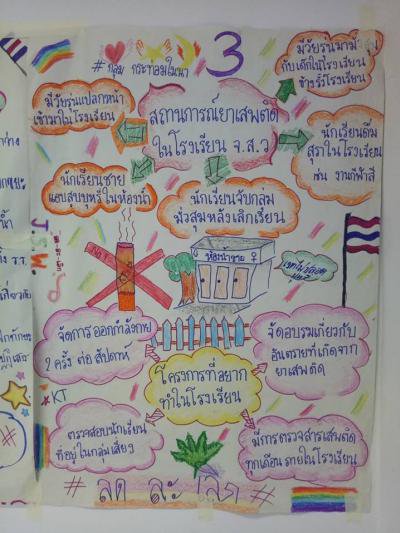 3
#กลุ่ม กระท่อมในนา
มีวัยรุ่นแปลกหน้า
เข้ามาในโรงเรียน
สถานการณ์ยาเสพติด
ในโรงเรียน จ.ส.ว
มีวัยรุ่นมา
กับเด็กในโรงเรียน
ข้างรั้วโรงเรียน
นักเรียนดื่ม
สุราในโรงเรียน
เช่น งานกีฬาสี
นักเรียนชาย
แอบสูบบุหรี่ในห้องน้ำ
นักเรียนจับกลุ่ม
มั่วสุมหลังเลิกเรียน
ห้องน้ำชาย
จัดการออกกำลังกาย
2 ครั้ง ต่อ สัปดาห์
จัดอบรมเกี่ยวกับ
อันตรายที่เกิดจาก
ยาเสพติด
โครงการที่อยาก
ทำในโรงเรียน
ตรวจสอบนักเรียน
ที่อยู่ในกลุ่มเสี่ยง
มีการตรวจสารเสพติด
ทุกเดือน ภายในโรงเรียน
# ลด ละ เลิก #
J.S.W.
KT